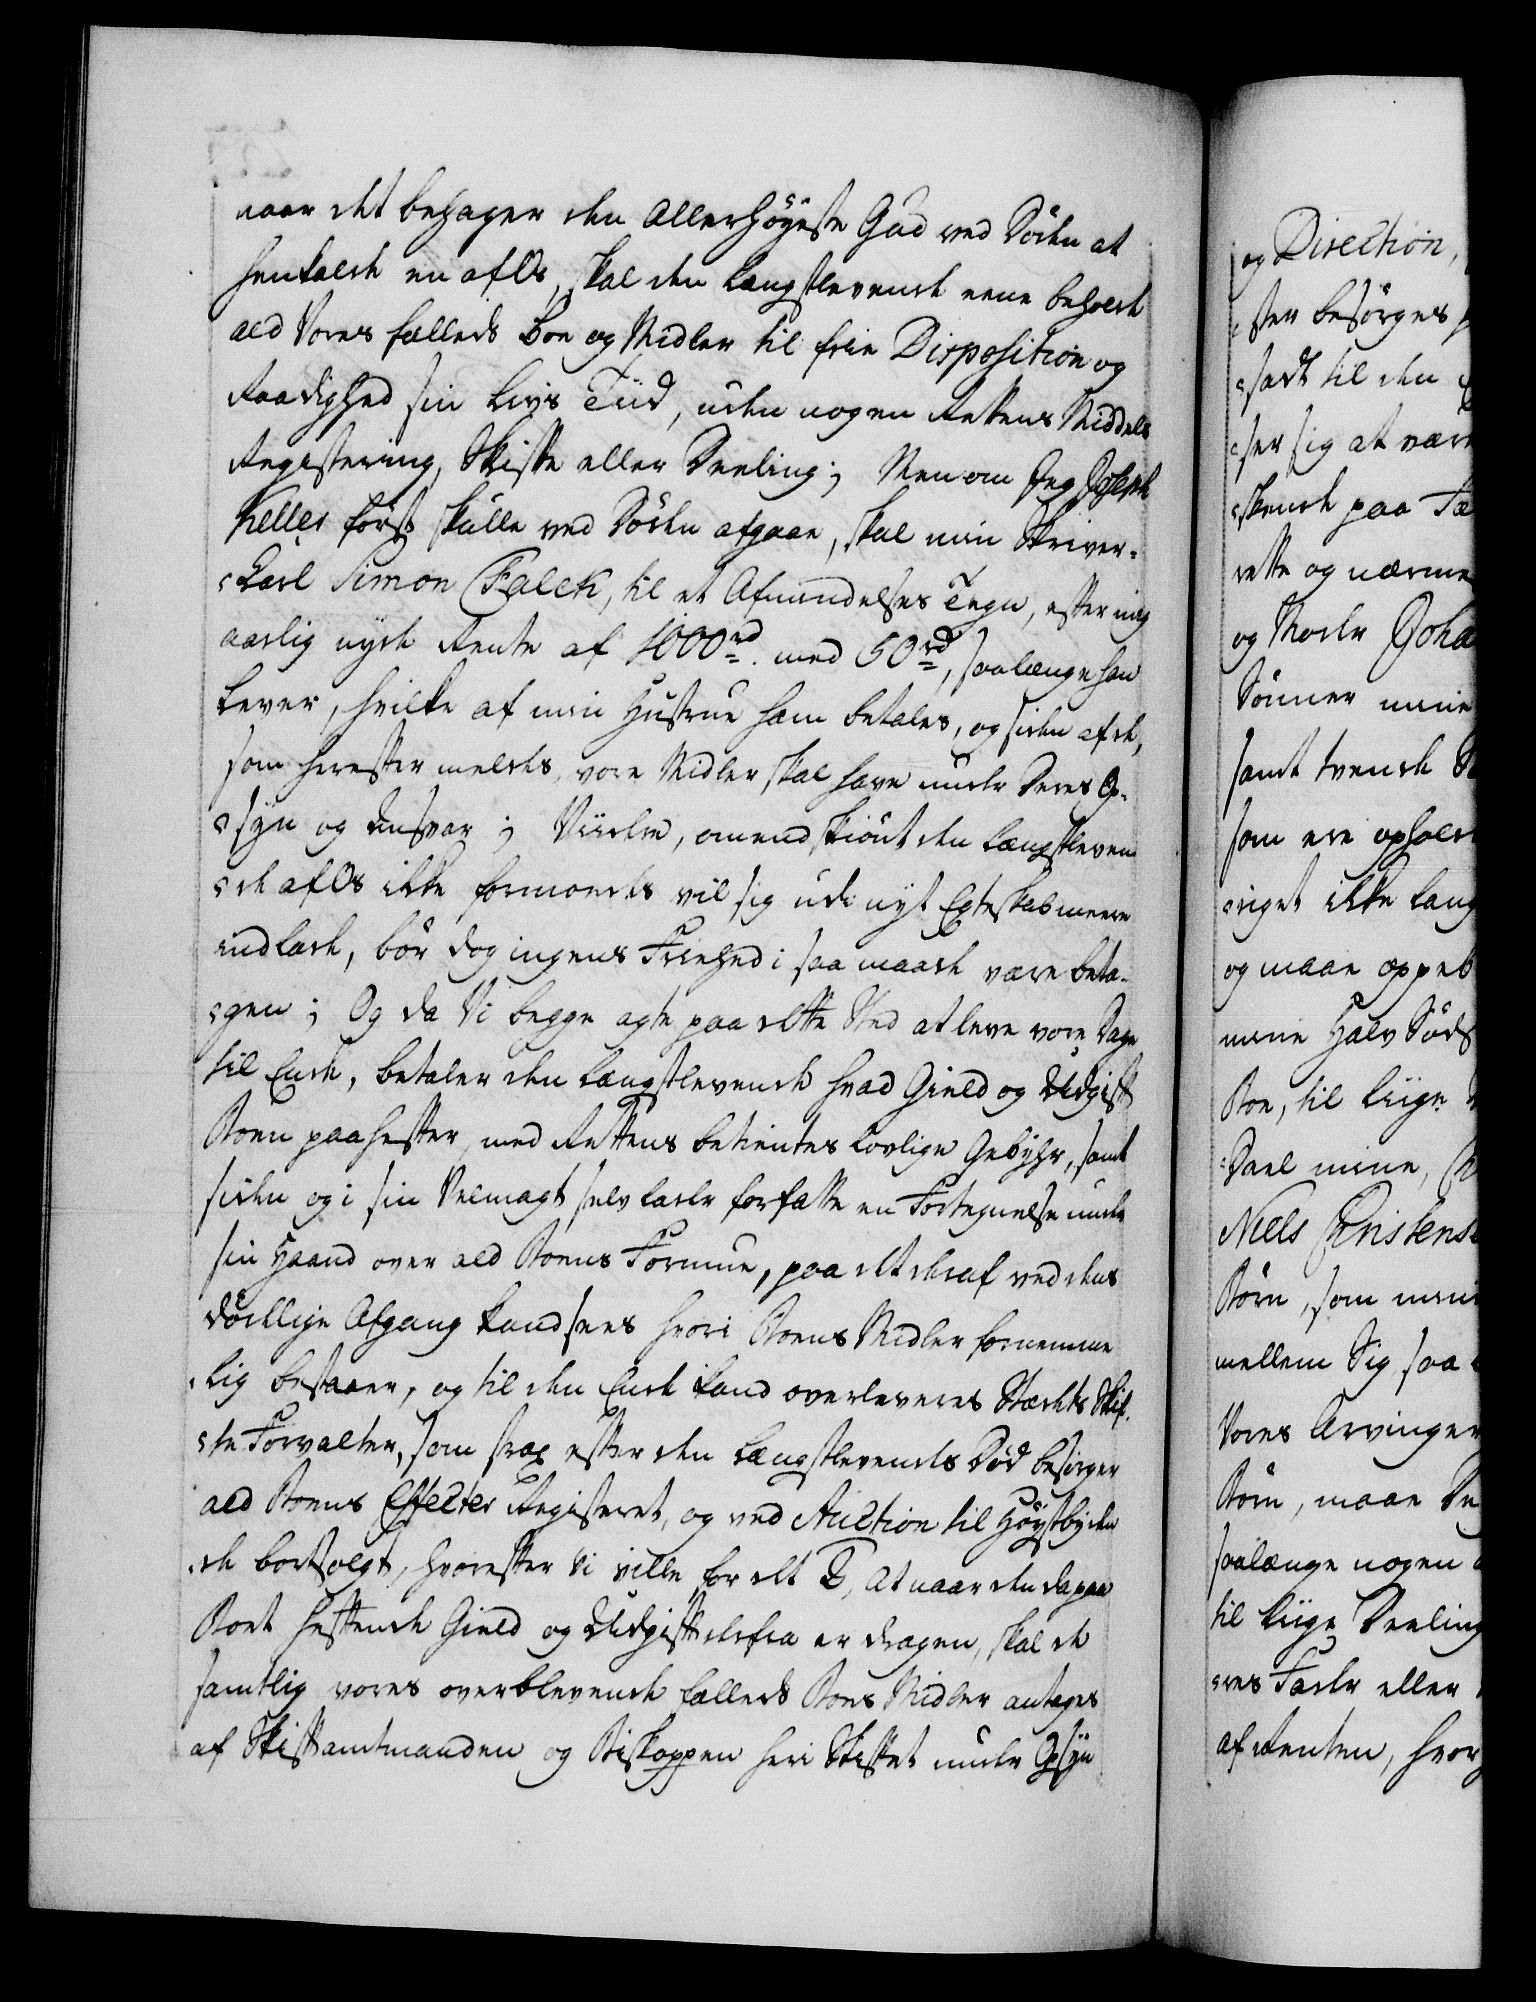 naar det behager den Allerhöyeste Gud ved Döden at
henkalde en af Os, skal den længstlevende eene beholde
ald Vores fælleds Boe og Midler til frie Disposition og
Raadighed sin Livs Tiid, uden nogen Rettens Middels
Registering, Skifte eller Deeling; Men om Jeg Joseph
Keller först skulle ved Döden afgaae, skal min Skriver-
Karl Simon Falck, til et Afmindelses Tegn, efter mig
aarlig nyde Rente af 1000 rd. med 50 rd, saalænge han
Lever, hvilke af min Hustrue ham betales, og siden af de,
som herefter meldes, vore Midler skal have under Deres Op-
syn og Ansvar; Viidere, omendskiönt den længstleven-
de af Os ikke formoedes vil sig udi nyt Egteskab meere
indlade, bör dog ingens Friehed i saa maade være beta-
gen; Og da Vi begge agte paa dette Sted at leve vore Dage
til Ende, betaler den længstlevende hvad Gield og Udgift
Boen paahefter, med Rettens betientes lovlige Gebyhr, samt
siden og i sin Velmagt selv lader forfatte en Fortegnelse under
sin Haand over ald Boens Formue, paa det deraf ved dens
dödelige Afgang kand sees hvori Boens Midler fornemme-
lig bestaaer, og til den Ende kand overleveres Stædets Skif-
te Forvalter, som strax efter den Længstlevendes Död besörger
ald Boens Effecter Registeret, og ved Auction til Höystbyden-
de bortsolgt, hvorefter Vi ville for det 2, At naar den da paa
Boet heftende Gield og Udgift derfra er dragen, skal de
samtlig vores overblevende fælleds Boes Midler antages
af Stiftamtmanden og Biskoppen her i Stiftet under Opsyn
og Direction,
ster besörges
sadt til den
ser sig at være
skende paa
rette og nærme
og Moder Joha
Sönner mine
samt tvende
som ere opholde
riget ikke lang
og maae oppeb
mine Halv Söds
Boe, til liige
Deel mine,
Niels Christens
Börn, som min
mellem Sig, saa
Vores Arvinger
Börn, maae De
saalænge nogen
til Liige Deeling
res Fader eller
af Renten, hvor